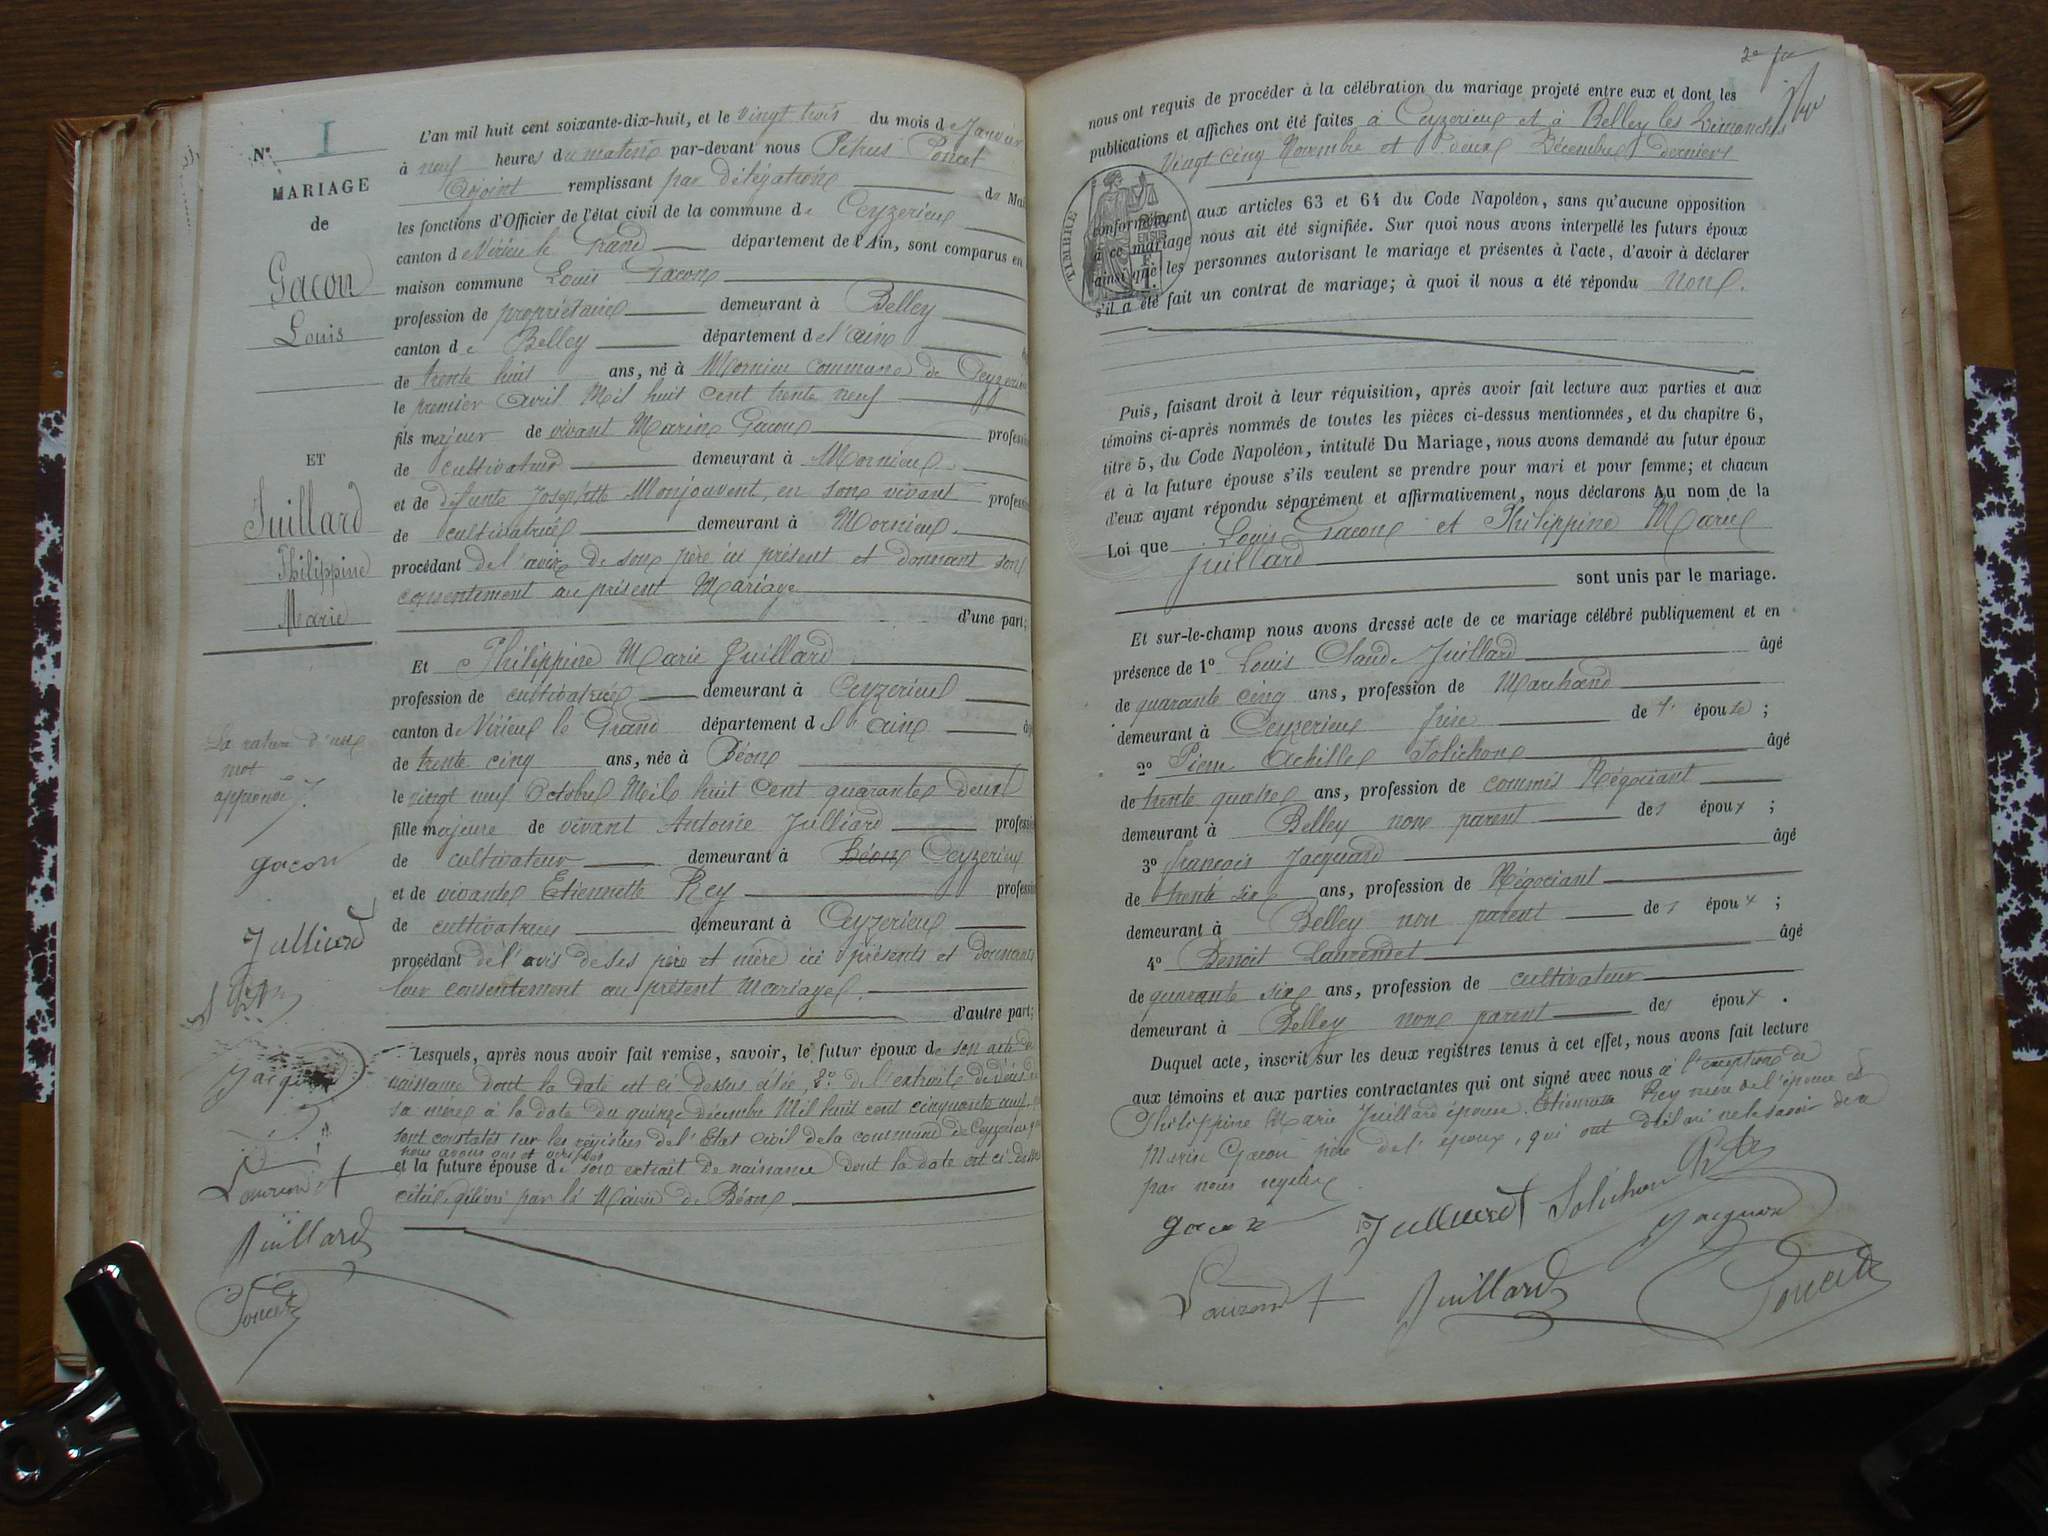 N° 1
MARIAGE
de
Gacon
Louis
ET
Juillard
Philippine
Marie
La rature d'un
mot
approuvé
gacon
Julliard
Jacquard
Laurendet
Juillard
Poncet
L'an mil huit cent soixante-dix-huit, et le vingt trois du mois de Janvier
à neuf heures du matin par-devant nous Pétrus Poncet
Adjoint remplissant par délégation du Mai
les fonctions d'Officier de l'état civil de la commune de Ceyzerieu
canton de Virieu le Grand département de l'Ain, sont comparus en
maison commune Louis Gacon
profession de propriétaire demeurant à Belley
canton de Belley département de l'ain
de trente huit ans, né à Mornieu commune de Ceyzerieu
le premier Avril Mil huit Cent trente neuf
fils majeur de vivant Marin Gacon professi
de cultivateur demeurant à Mornieu
et de défunte Josephte Monjouvent, en son vivant professi
de cultivatrice demeurant à Mornieu
procédant de l'avis de son père ici présent et donnant son
consentement au présent Mariage
d'une part;
Et Philippine Marie Juillard
profession de cultivatrice demeurant à Ceyzerieu
canton de Virieu le Grand département de l'ain
de trente cinq ans, née à Béon
le vingt neuf Octobre Mil huit Cent quarante deux
fille majeure de vivant Antoine Julliard professi
de cultivateur demeurant à Béon Ceyzerieu
et de vivante Etiennette Rey professi
de cultivatrice demeurant à Ceyzerieu
procédant de l'avis de ses père et mère ici présents et donnant
leur consentement au présent Mariage.
d'autre part;
Lesquels, après nous avoir fait remise, savoir, le futur époux de son acte de
naissance dont la date est ci dessus citée, 2° de l'extrait de décès de
sa mère à la date du quinze décembre Mil huit cent cinquante neuf
sont constatés sur les registres de l'Etat civil de la commune de Ceyzerieu que
nous avons vus et vérifiés
et la future épouse de son extrait de naissance dont la date est ci-dessus
citée délivré par le Maire de Béon
2e
nous ont requis de procéder à la célébration du mariage projeté entre eux et dont les
publications et affiches ont été faites à Ceyzerieu et à Belley les Dimanches
Vingt Cinq Novembre et deux Décembre derniers
TIMBRE
conformément aux articles 63 et 64 du Code Napoléon, sans qu'aucune opposition
à ce mariage nous ait été signifiée. Sur quoi nous avons interpellé les futurs époux
ainsi que les personnes autorisant le mariage et présentes à l'acte, d'avoir à déclarer
s'il a été fait un contrat de mariage; à quoi il nous a été répondu non.
Puis, faisant droit à leur réquisition, après avoir fait lecture aux parties et aux
témoins ci-après nommés de toutes les pièces ci-dessus mentionnées, et du chapitre 6,
titre 5, du Code Napoléon, intitulé Du Mariage, nous avons demandé au futur époux
et à la future épouse s'ils veulent se prendre pour mari et pour femme; et chacun
d'eux ayant répondu séparément et affirmativement, nous déclarons Au nom de la
Loi que Louis Gacon et Philippine Marie
Juillard
sont unis par le mariage.
Et sur-le-champ nous avons dressé acte de ce mariage célébré publiquement et en
présence de 1° Louis Claude Juillard âgé
de quarante cinq ans, profession de Marchand
demeurant à Ceyzerieu frère de l' épouse ;
2° Pierre Achille Solichon âgé
de trente quatre ans, profession de commis Négociant
demeurant à Belley non parent des époux ;
3° françois Jacquard âgé
de trente six ans, profession de Négociant
demeurant à Belley non parent des époux ;
4° Benoit Laurendet âgé
de quarante six ans, profession de cultivateur
demeurant à Belley non parent des époux .
Duquel acte, inscrit sur les deux registres tenus à cet effet, nous avons fait lecture
aux témoins et aux parties contractantes qui ont signé avec nous à l'exception de
Philippine Marie Juillard épouse, Etiennette Rey mère de l'épouse et
Marin Gacon père de l'époux, qui ont déclaré ne le savoir de ce
par nous requis
gacon Julliard Solichon
Jacquard
Laurendet Juillard Poncet